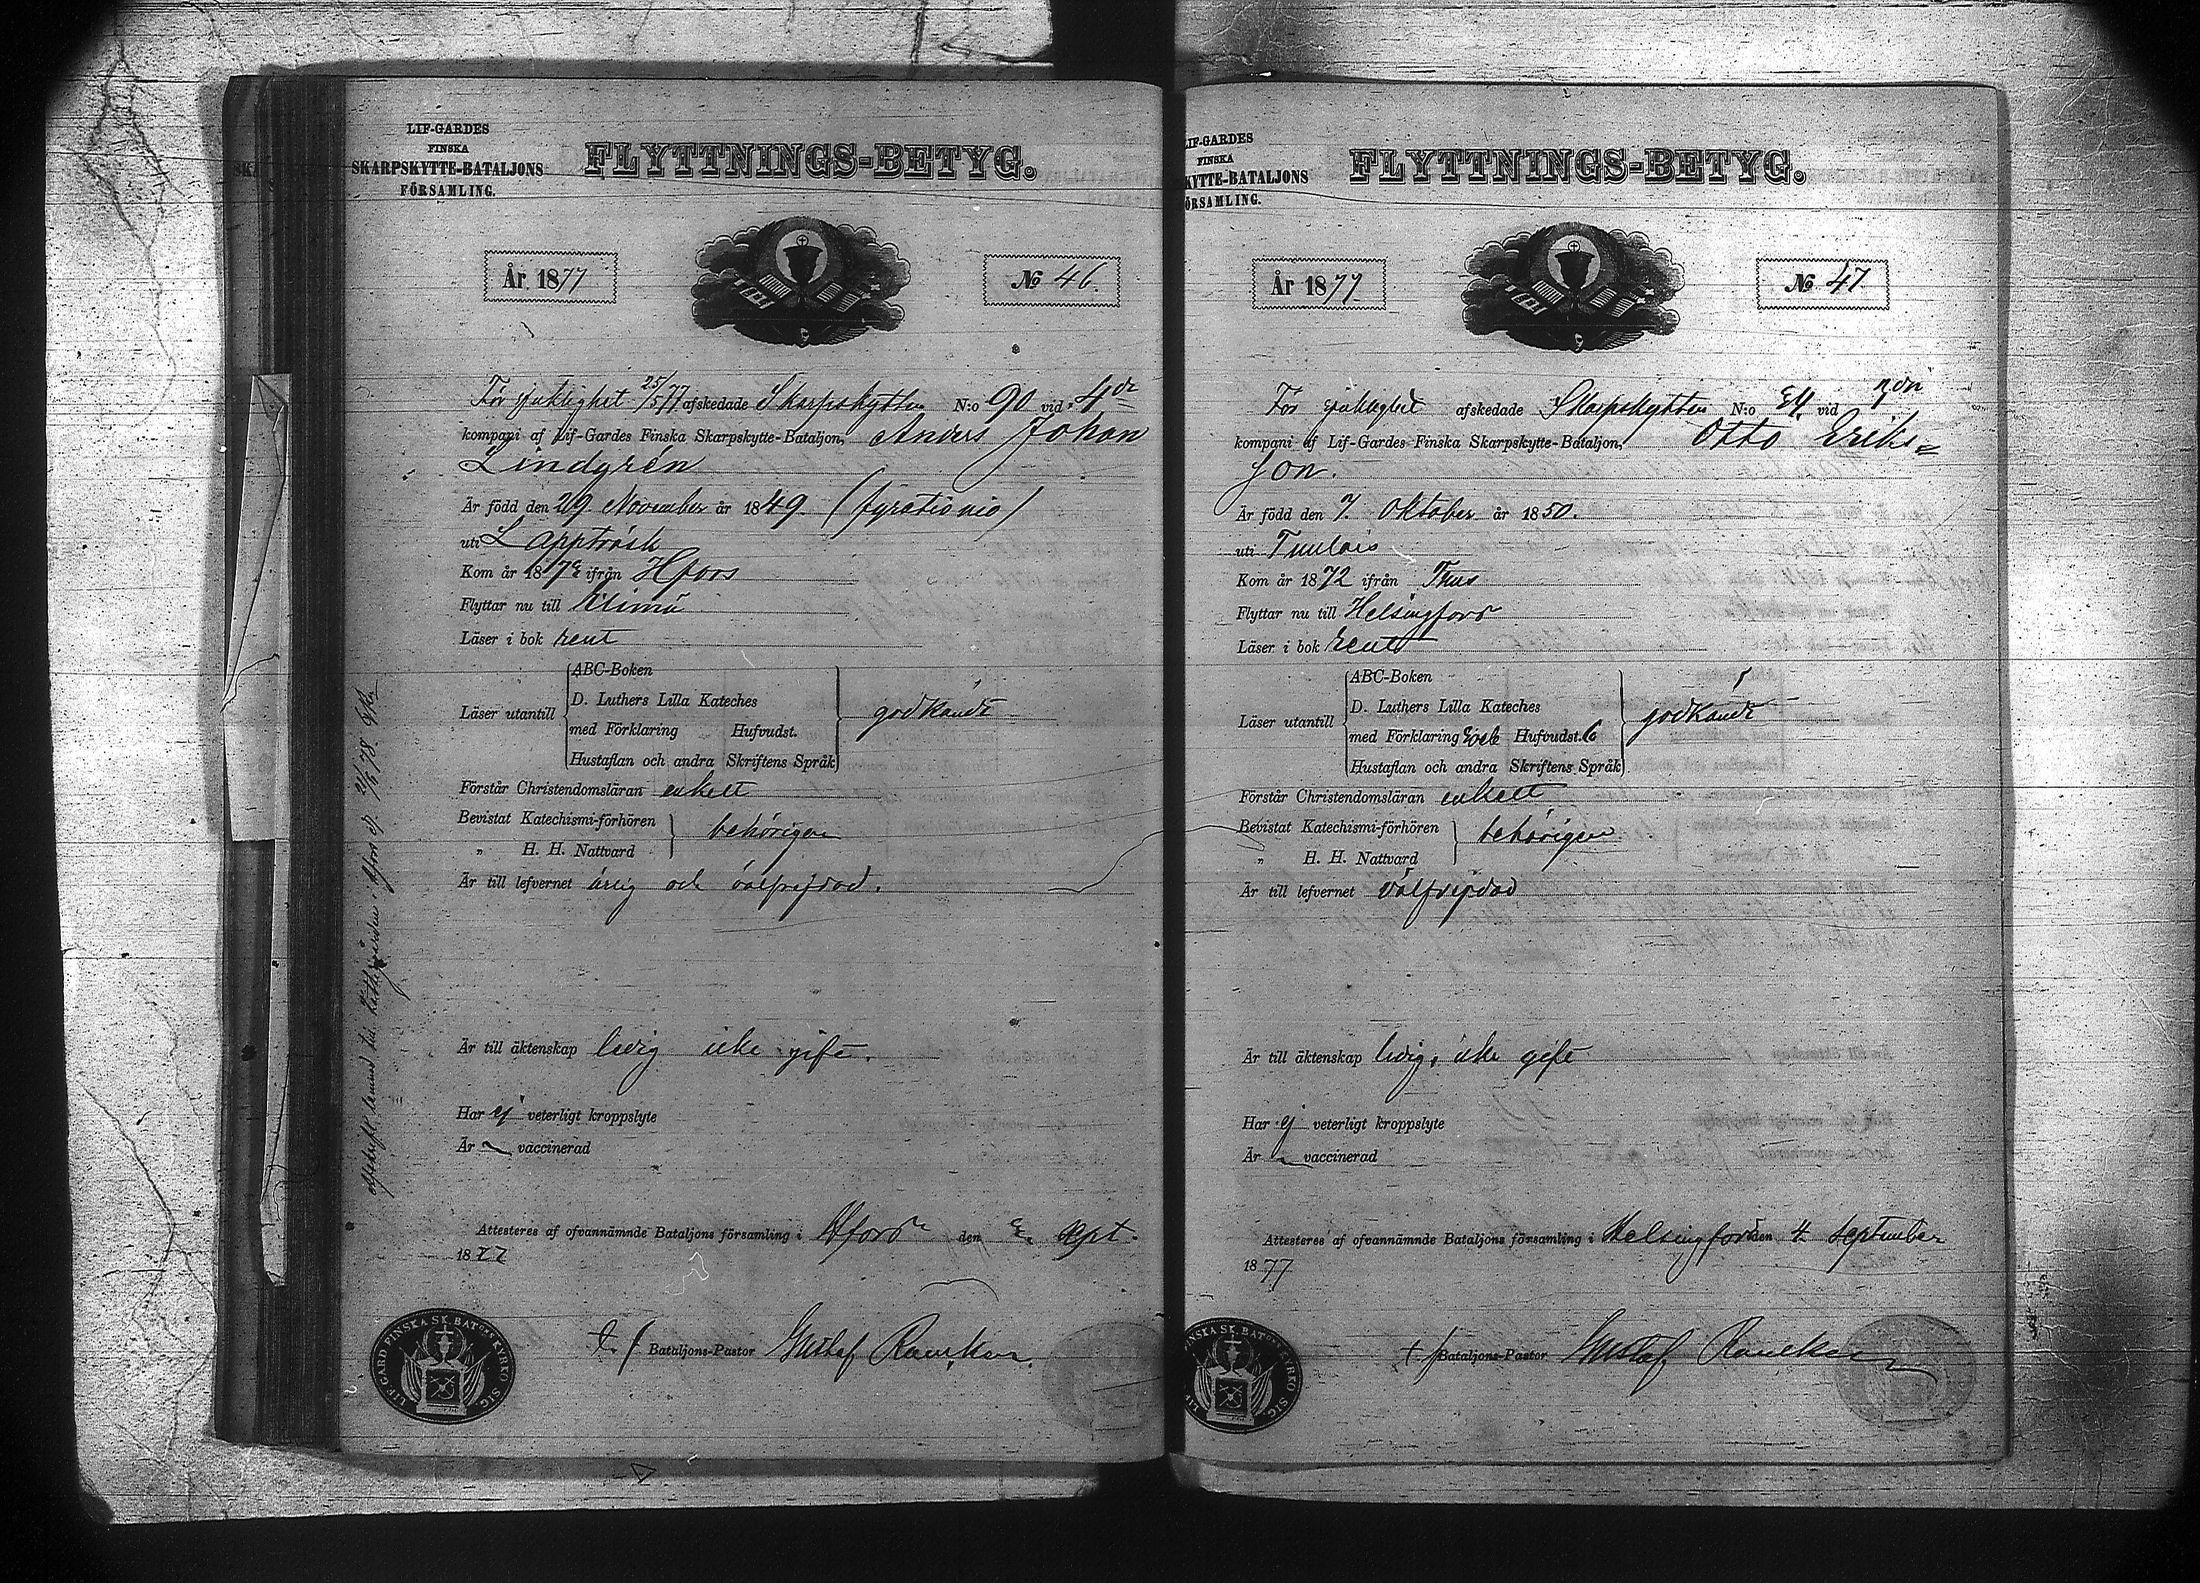 LIF-GARDES
FINSKA
SKARPSKYTTE-BATALJONS
FÖRSAMLING.
FLYTTNINGS-BETYG.
År 1877
No 46.
För sjuklighet 25/5 77 afskedade Skarpskytten N:o 90 vid 4de
kompani af Lif-Gardes Finska Skarpskytte-Bataljon, Anders Johan
Lindgrén
Är född den 29 November år 1849. (fyratio nio)
uti Lappträsk
Kom år 187 ifrån Hfors
Flyttar nu till Elimä
Läser i bok rent
ABC-Boken
D. Luthers Lilla Kateches
Läser utantill
med Förklaring Hufvudst.
godkändt
Hustaflan och andra Skriftens Språk
Förstår Christendomsläran enkelt
Bevistat Katechismi-förhören
behörigen
„ H. H. Nattvard
Är till lefvernet ärlig och välfrejdad.
Är till äktenskap ledig icke gift.
Har ej veterligt kroppslyte
Är vaccinerad
Attesteras af ofvannämnde Bataljons församling i Hfors den sept.
1877
t. f. Bataljons-Pastor Gustaf
LIF GARD FINSKA SK. BAT KYRKO SIG.
afskrift lemnad till i Hfors 78.
IF-GARDES
FINSKA
KYTTE-BATALJONS
ÖRSAMLING.
FLYTTNINGS-BETYG.
År 1877
No 47.
För sjuklighet afskedade Skarpskytten N:o 34 vid
kompani af Lif-Gardes Finska Skarpskytte-Bataljon, Otto Eriks=
son.
Är född den 7. Oktober år 1850.
uti Tuulois
Kom år 1872 ifrån Thus
Flyttar nu till Helsingfors
Läser i bok rent
ABC-Boken
D. Luthers Lilla Kateches
Läser utantill
med Förklaring Hufvudst. 6
godkändt
Hustaflan och andra Skriftens Språk
Förstår Christendomsläran enkelt
Bevistat Katechismi-förhören
behörigen
„ H. H. Nattvard
Är till lefvernet välfrejdad
Är till äktenskap ledig, icke gift
Har ej veterligt kroppslyte
Är vaccinerad
Attesteras af ofvannämnde Bataljons församling i Helsingfors den 4 september
1877
t. f. Bataljons-Pastor Gustaf
LIF NSKA SK. BAT KYRKO SIG.